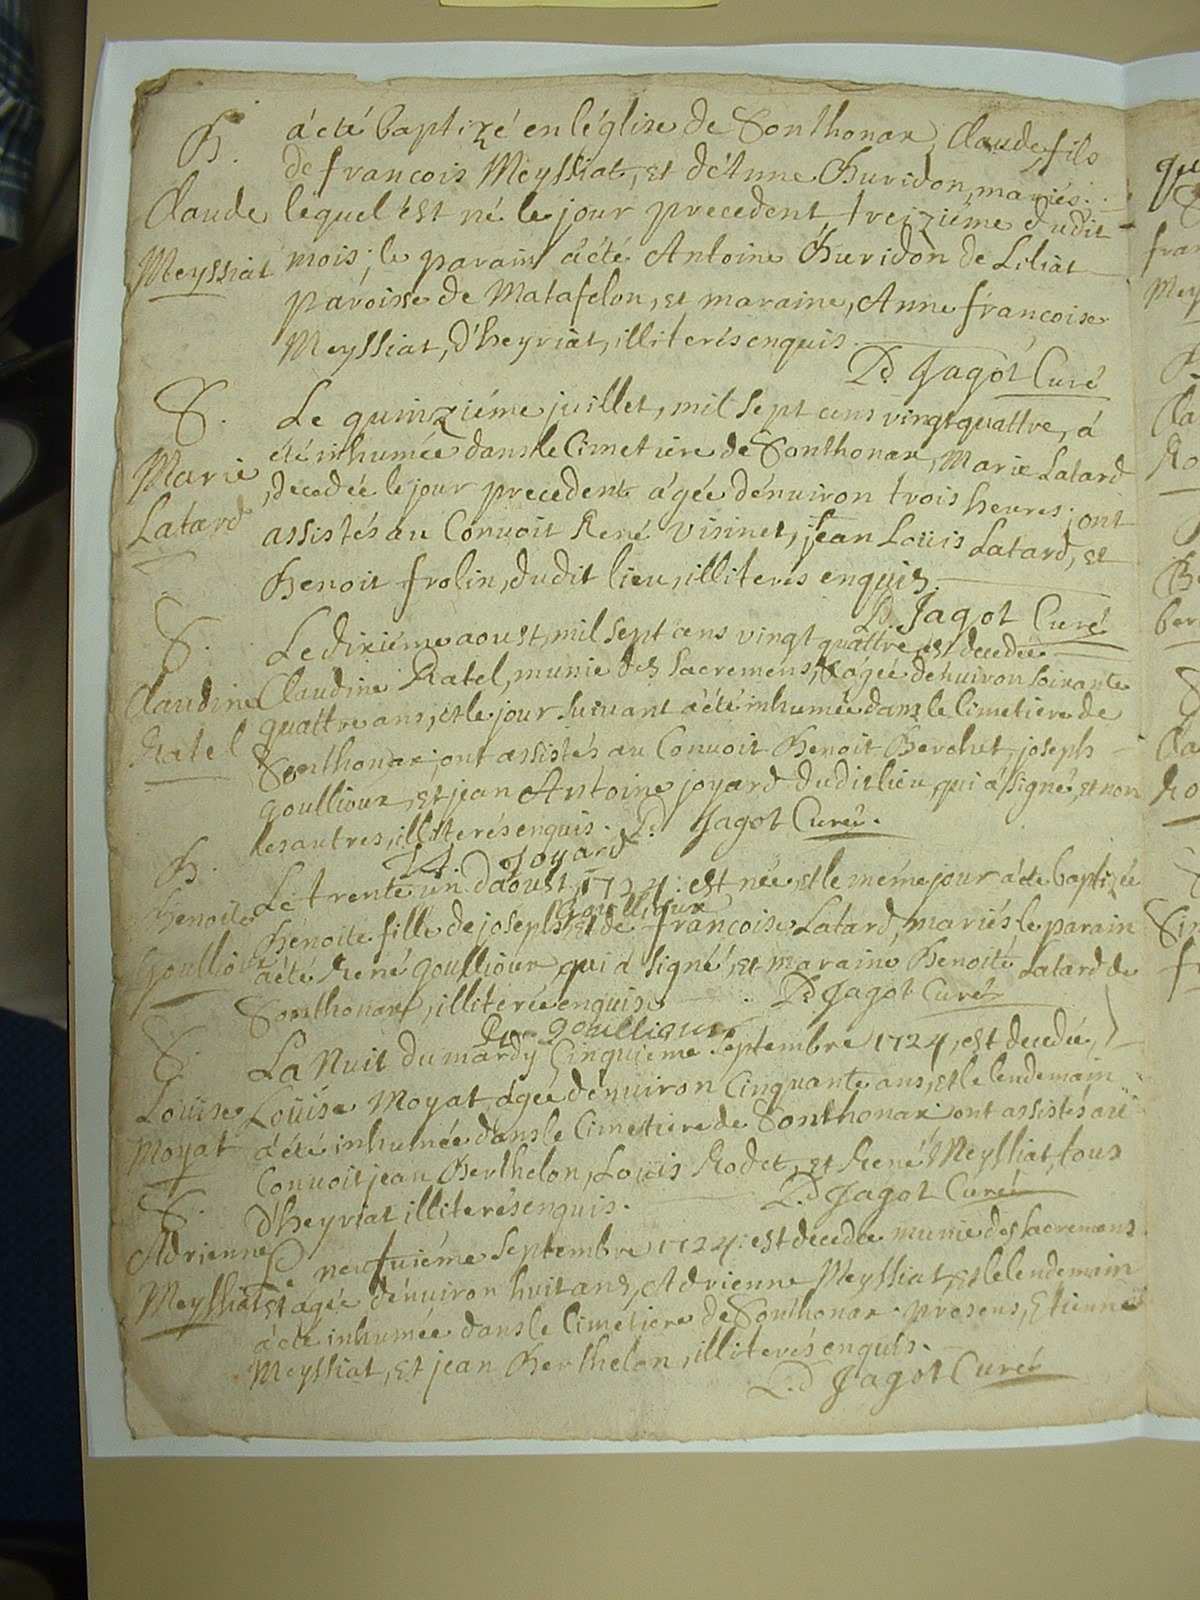 B. a été baptizé en l'église de Sonthonax, Claude, fils
de francois Meyssiat, et d'Anne Buridon, mariés.
Claude lequel est né le jour precedent treizième dudit
Meyssiat mois; le parain a été Antoine Buridon de Liliat
paroisse de Matafelon, et maraine, Anne françoise
Meyssiat, d'heyriat, illiterés enquis.
Jagot Curé
S. Le quinziéme juillet, mil sept cens vingt quattre, a
été inhumée dans le Cimetiere de Sonthonax, Marie Latard
Marie decedée le jour precedent agée d'enuiron trois heures; ont
Latard assistés au Conuoit René Visinet, jean Loüis Latard, et
Benoit frolin, dudit lieu, illiteres enquis.
Jagot Curé
S. Le dixiéme aoust, mil sept cens vingt quattre, est decedée
Claudine Claudine Ratel, munie des Sacremens, agée d'enuiron soixante
quattre ans, et le jour suiuant a été inhumée dans le Cimetiere de
Ratel Sonthonax, ont assistés au Conuoit Benoit Berchet, joseph
goullioux, et jean Antoine joyard dudit lieu qui a signé, et non
les autres, illiterés enquis. Jagot Curé.
Joyard
B. Le trente un d'aoust, 1724: est née, et le même jour a été baptizée
goullioux
Benoite Benoite fille de joseph, et de françoise Latard, mariés, le parain
Goullioux a été René goullioux qui a signé, et maraine Benoite Latard de
Sonthonax, illiterée enquise. Jagot Curé
goullioux
S. La Nuit du mardy Cinquieme Septembre 1724, est decedée,
Loüise Loüise Moyat, agée d'enuiron Cinquante ans, et le lendemain
Moyat a été inhumée dans le Cimetiere de Sonthonax; ont assistés au
Conuoit jean Berthelon, Loüis Rodet, et René Meyssiat, tous
d'heyriat illiterés enquis. Jagot Curé
S.
Adrienne Le neufuiéme Septembre 1724: est decedée munie des sacremens
Meyssiat et agée d'enuiron huit ans, Adrienne Meyssiat, et le lendemain
a été inhumée dans le Cimetiere de Sonthonax; presens, Etienne
Meyssiat, et jean Berthelon, illiterés enquis.
Jagot Curé